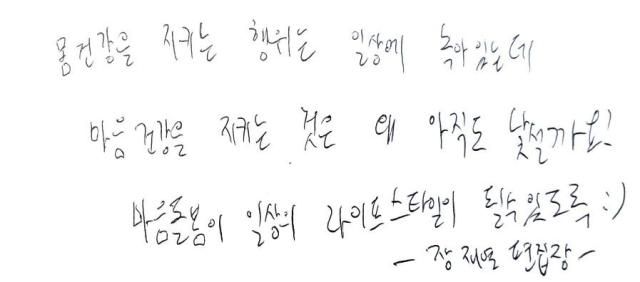 몸건강을 지키는 행위는 일상에 녹아있는데
마음 건강을 지키는 것은 왜 아직도 낯설까요!
마음돌봄이 일상의 라이프스타일이 될수 있도록 :)
- 장재열 편집장 -